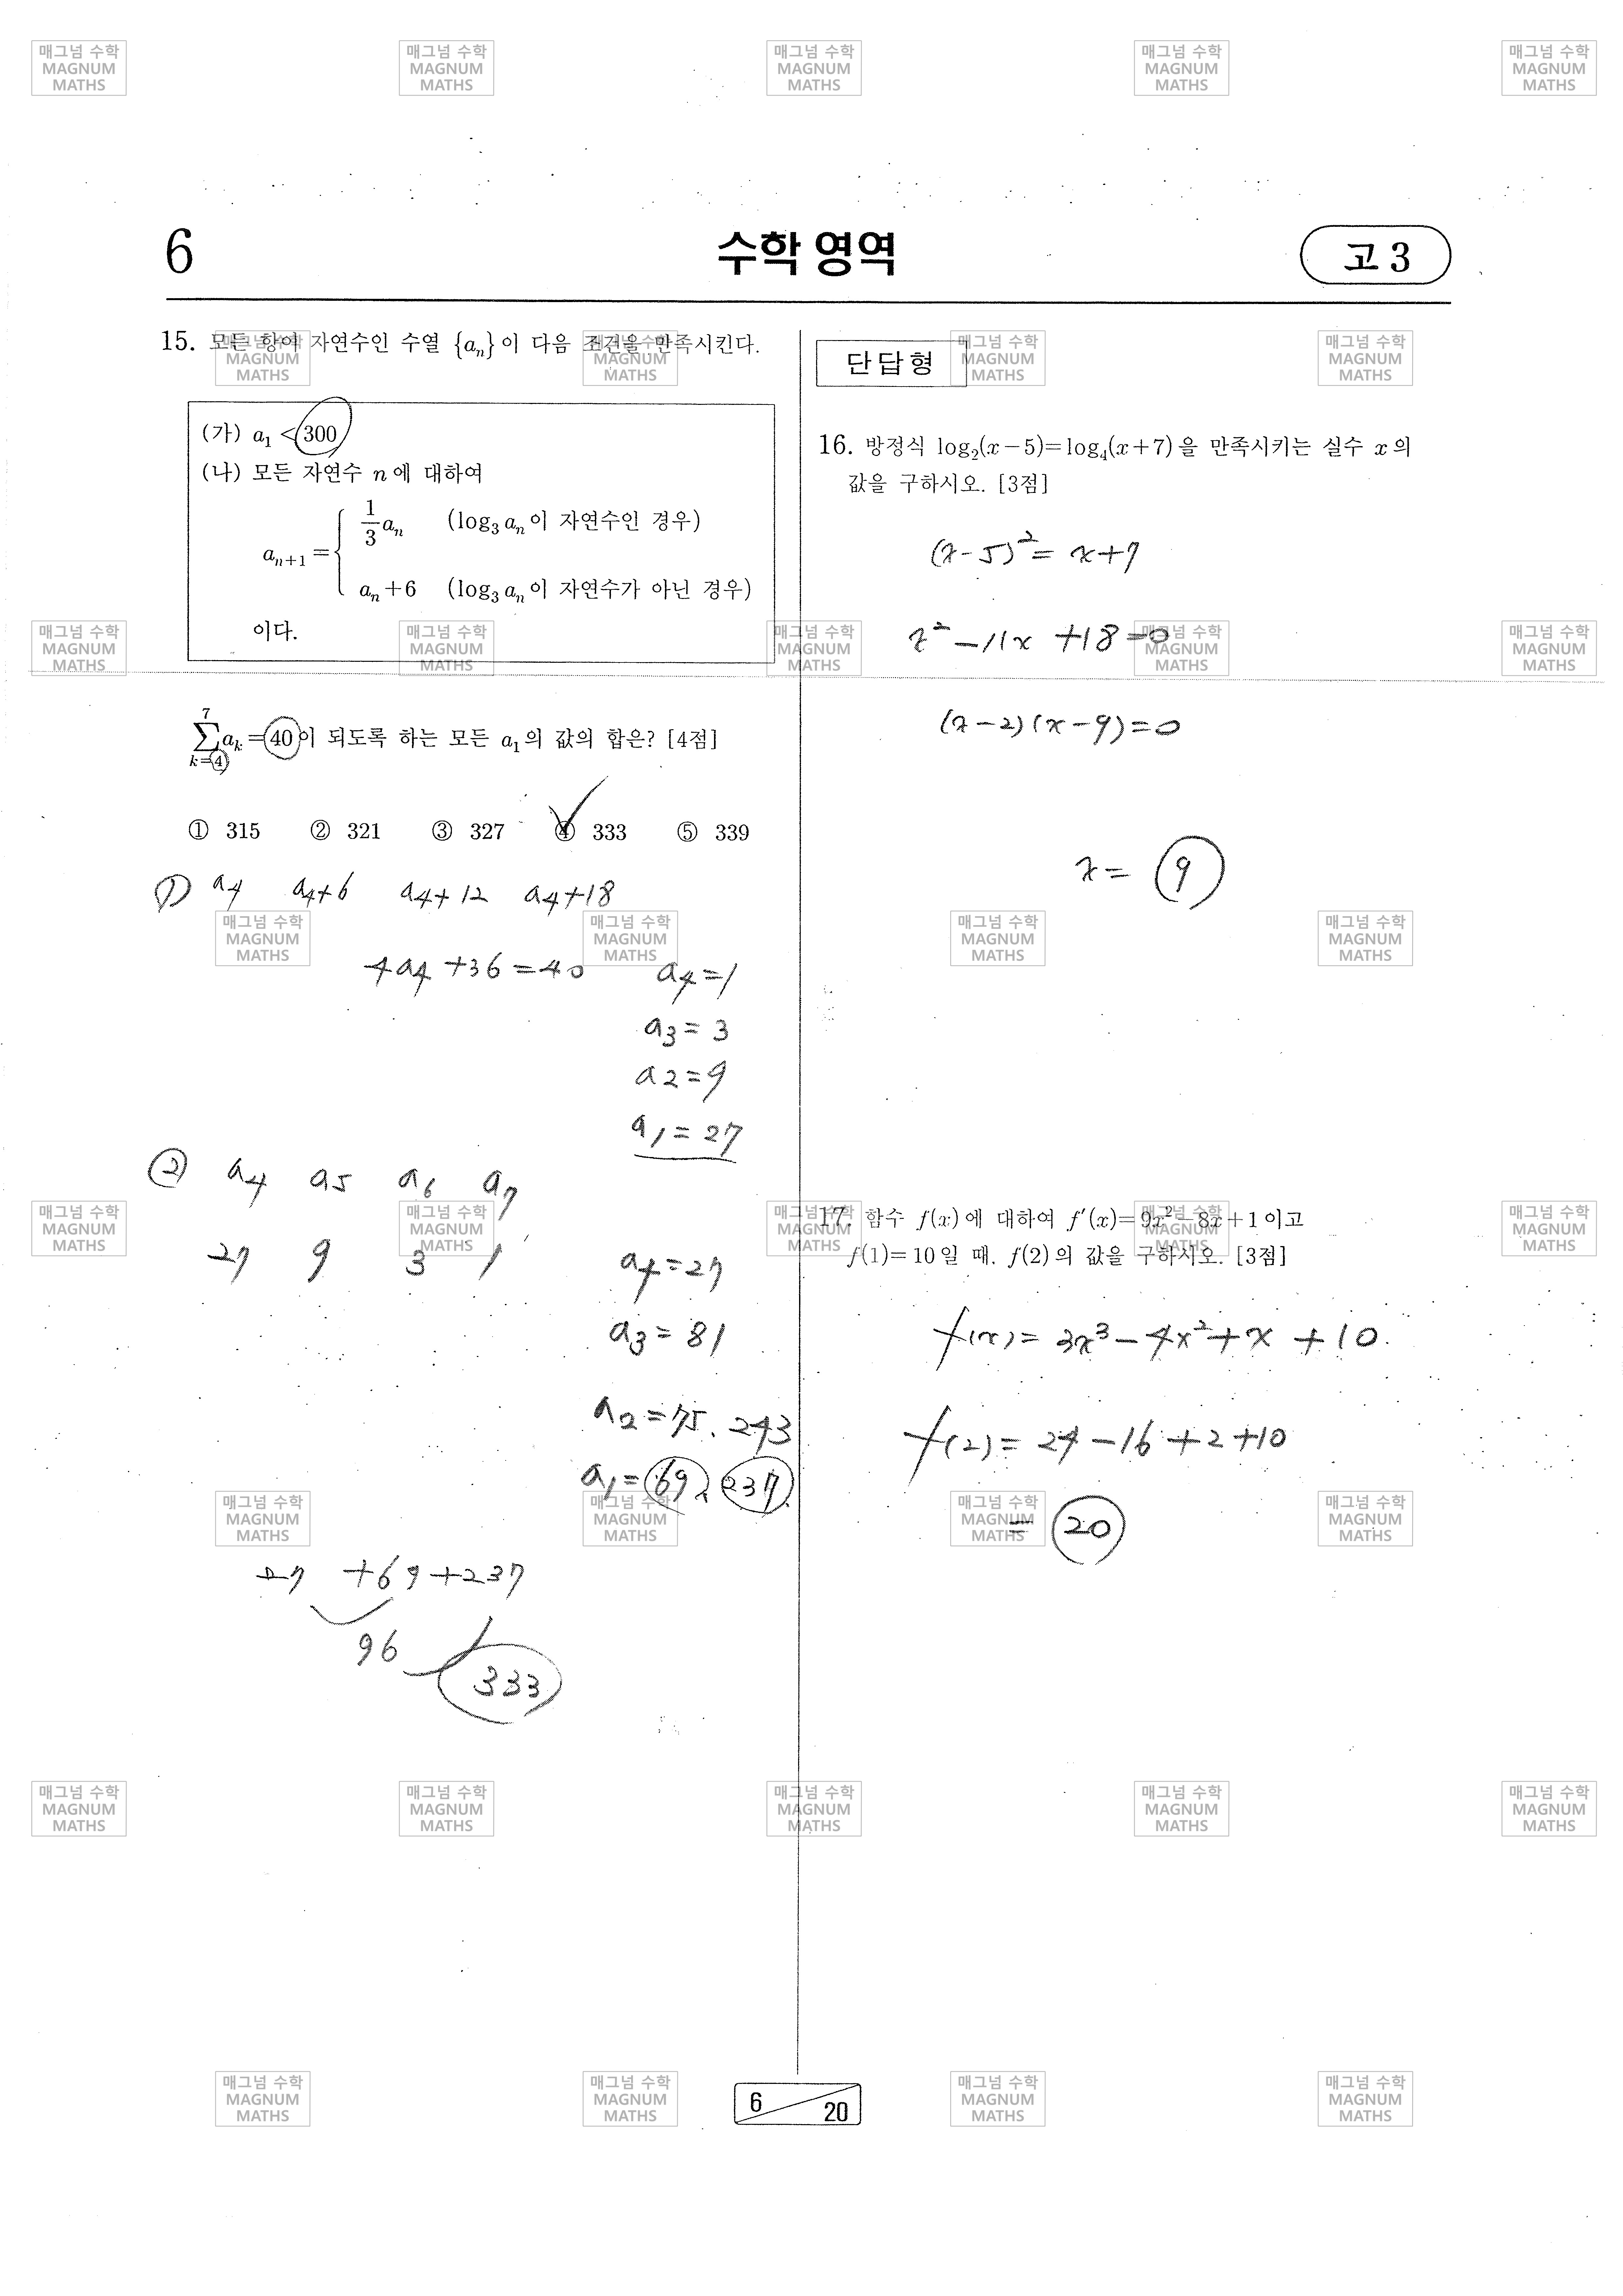 6
수학 영역
고 3
15. 모든 항이 자연수인 수열 {aₙ}이 다음 조건을 만족시킨다.
(가) a₁ < 300
(나) 모든 자연수 n에 대하여
aₙ₊₁ = { 1/3 aₙ (log₃ aₙ이 자연수인 경우)
aₙ+6 (log₃ aₙ이 자연수가 아닌 경우)
이다.
7
∑ aₖ = 40이 되도록 하는 모든 a₁의 값의 합은? [4점]
k=4
① 315 ② 321 ③ 327 ④ 333 ⑤ 339
① a₄ a₄+6 a₄+12 a₄+18
4a₄ +36 = 40 a₄ = 1
a₃ = 3
a₂ = 9
a₁ = 27
② a₄ a₅ a₆ a₇
27 9 3 1
a₄ = 27
a₃ = 81
a₂ = 75, 243
a₁ = 69, 237
27 +69+237
96
333
단답형
16. 방정식 log₂(x-5)=log₄(x+7)을 만족시키는 실수 x의
값을 구하시오. [3점]
(x-5)² = x+7
x² -11x +18 = 0
(x-2)(x-9)=0
x = 9
17. 함수 f(x)에 대하여 f′(x)=9x²-8x+1이고
f(1)=10일 때, f(2)의 값을 구하시오. [3점]
f(x) = 3x³-4x²+x +10
f(2) = 24-16+2+10
= 20
6 / 20
매그넘 수학
MAGNUM
MATHS